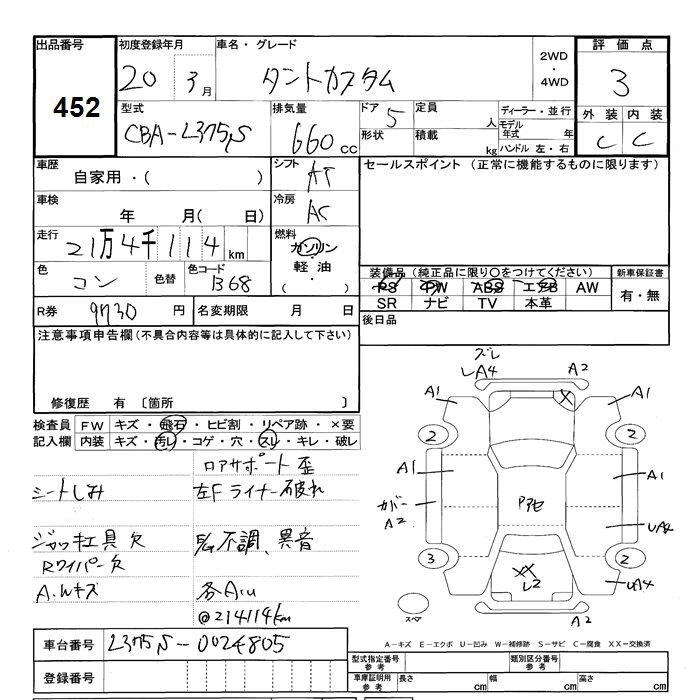 出品番号 初度登録年月 車名・グレード 2WD・4WD 評価点
452 20 3月 タントカスタム 3
型式 排気量 ドア 5 定員 人 ディーラー・並行 外装 内装
CBA-L375S 660cc 形状 積載 kg モデル年式 年 ハンドル 左・右 C C
車歴 シフト セールスポイント(正常に機能するものに限ります)
自家用・( ) AT
車検 冷房
年 月(日) AC
走行 燃料
21万4千114km ガソリン
軽油
( )
色 色替 色コード 装備品(純正品に限り〇をつけてください) 新車保証書
コン B68 PS PW ABS エアB AW 有・無
SR ナビ TV 本革
R券 9730円 名変期限 月 日 後日品
注意事項申告欄(不具合内容等は具体的に記入して下さい)
修復歴 有〔箇所 〕
検査員 FW キズ・飛石・ヒビ割・リペア跡・×要
記入欄 内装 キズ・汚レ・コゲ・穴・スレ・キレ・破レ
ロアサポート歪
シートしみ 左Fライナー破れ
ジャッキ工具欠 不調、異音
Rワイパー欠
A.Wキズ 各A.U
@214114km
車台番号 L375S-0024805
登録番号
ズレ
LA4 A2
A1 X A1
2 2
A1 A1
カバー
A2
Pアセ
UA2
3 2
XX
L2
UA4
スペア
A2
A-キズ E-エクボ U-凹み W-補修跡 S-サビ C-腐食 XX-交換済
型式指定番号 参考 類別区分番号 参考
車庫証明用 参考 長さ cm 幅 cm 高さ cm